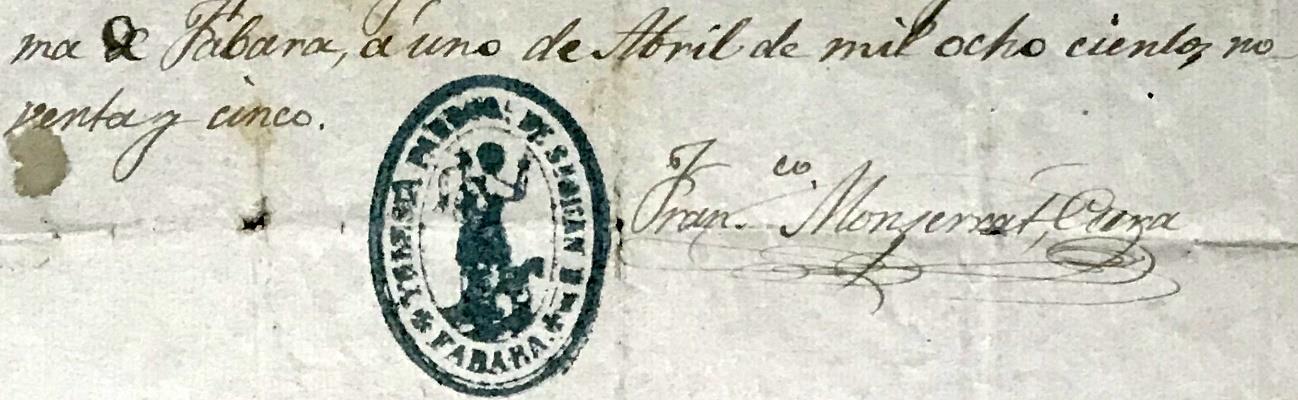 ma de Fabara, á uno de Abril de mil ocho cientos no-
venta y cinco.
YGLESIA PARROQL DE S. JUAN BTA
* FABARA. *
Fran.co Monserrat, Cura